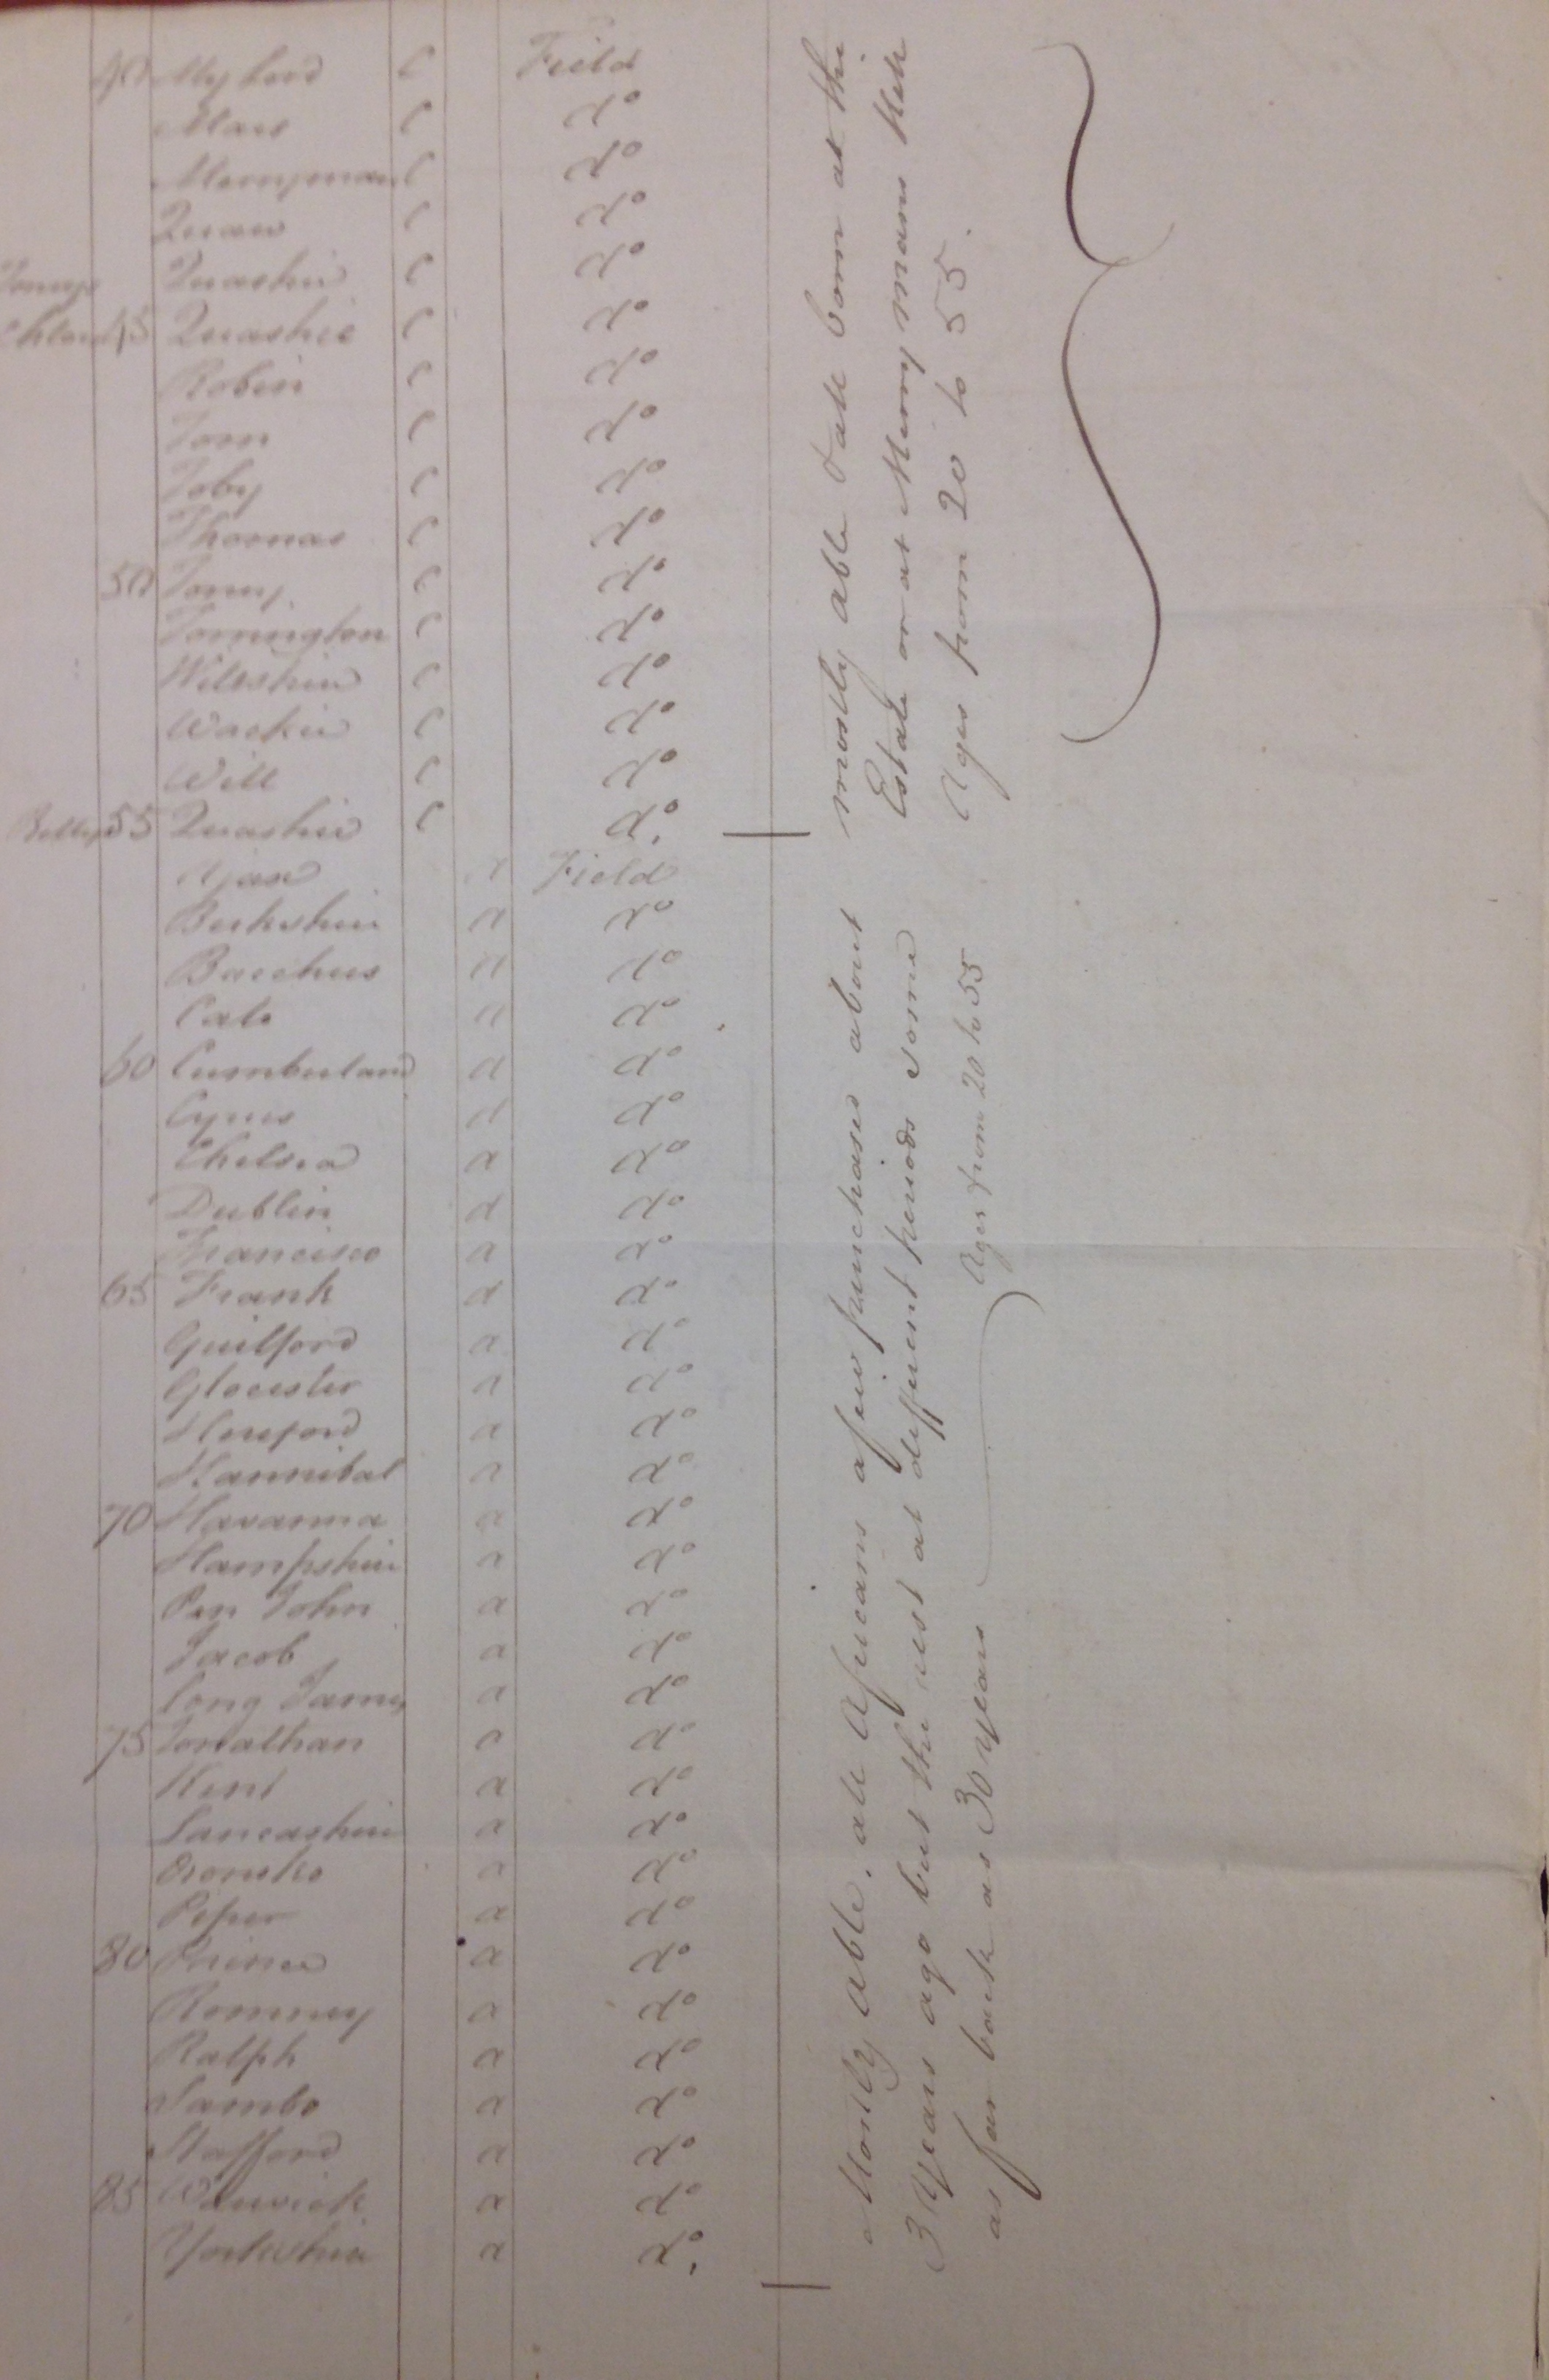 40 My Lord C Field
Mars C do
Merryman C do
Quaw C do
Quashie C do
45 Quashie C do
Robin C do
Tom C do
Toby C do
Thomas C do
50 Tony C do
Torrington C do
Wiltshire C do
Wackie C do
Will C do
55 Quashie C do.
Ajax a Field
Berkshire a do
Bacchus a do
Cato a do
60 Cumberland a do
Cyrus a do
Chelsea a do
Dublin a do
Francisco a do
65 Frank a do
Guilford a do
Glocester a do
Hereford a do
Hannibal a do
70 Havanna a do
Hampshire a do
Pen John a do
Jacob a do
Long James a do
75 Jonathan a do
Kent a do
Lancashire a do
Oronoko a do
Peter a do
80 Prince a do
Romney a do
Ralph a do
Sambo a do
Stafford a do
85 Warwick a do
Yorkshire a do.
mostly able & all born at the
Estate or at Merry mans Hill
Ages from 20 to 55.
Mostly able, all Africans a few purchased about
3 Years ago but the rest at different periods some
as far back as 30 years
Ages from 20 to 55